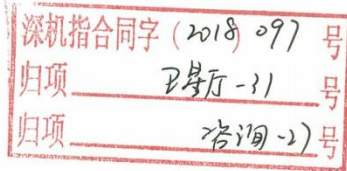 深机指合同字(2018)097号
归项 卫星厅-31号
归项 咨询-27号